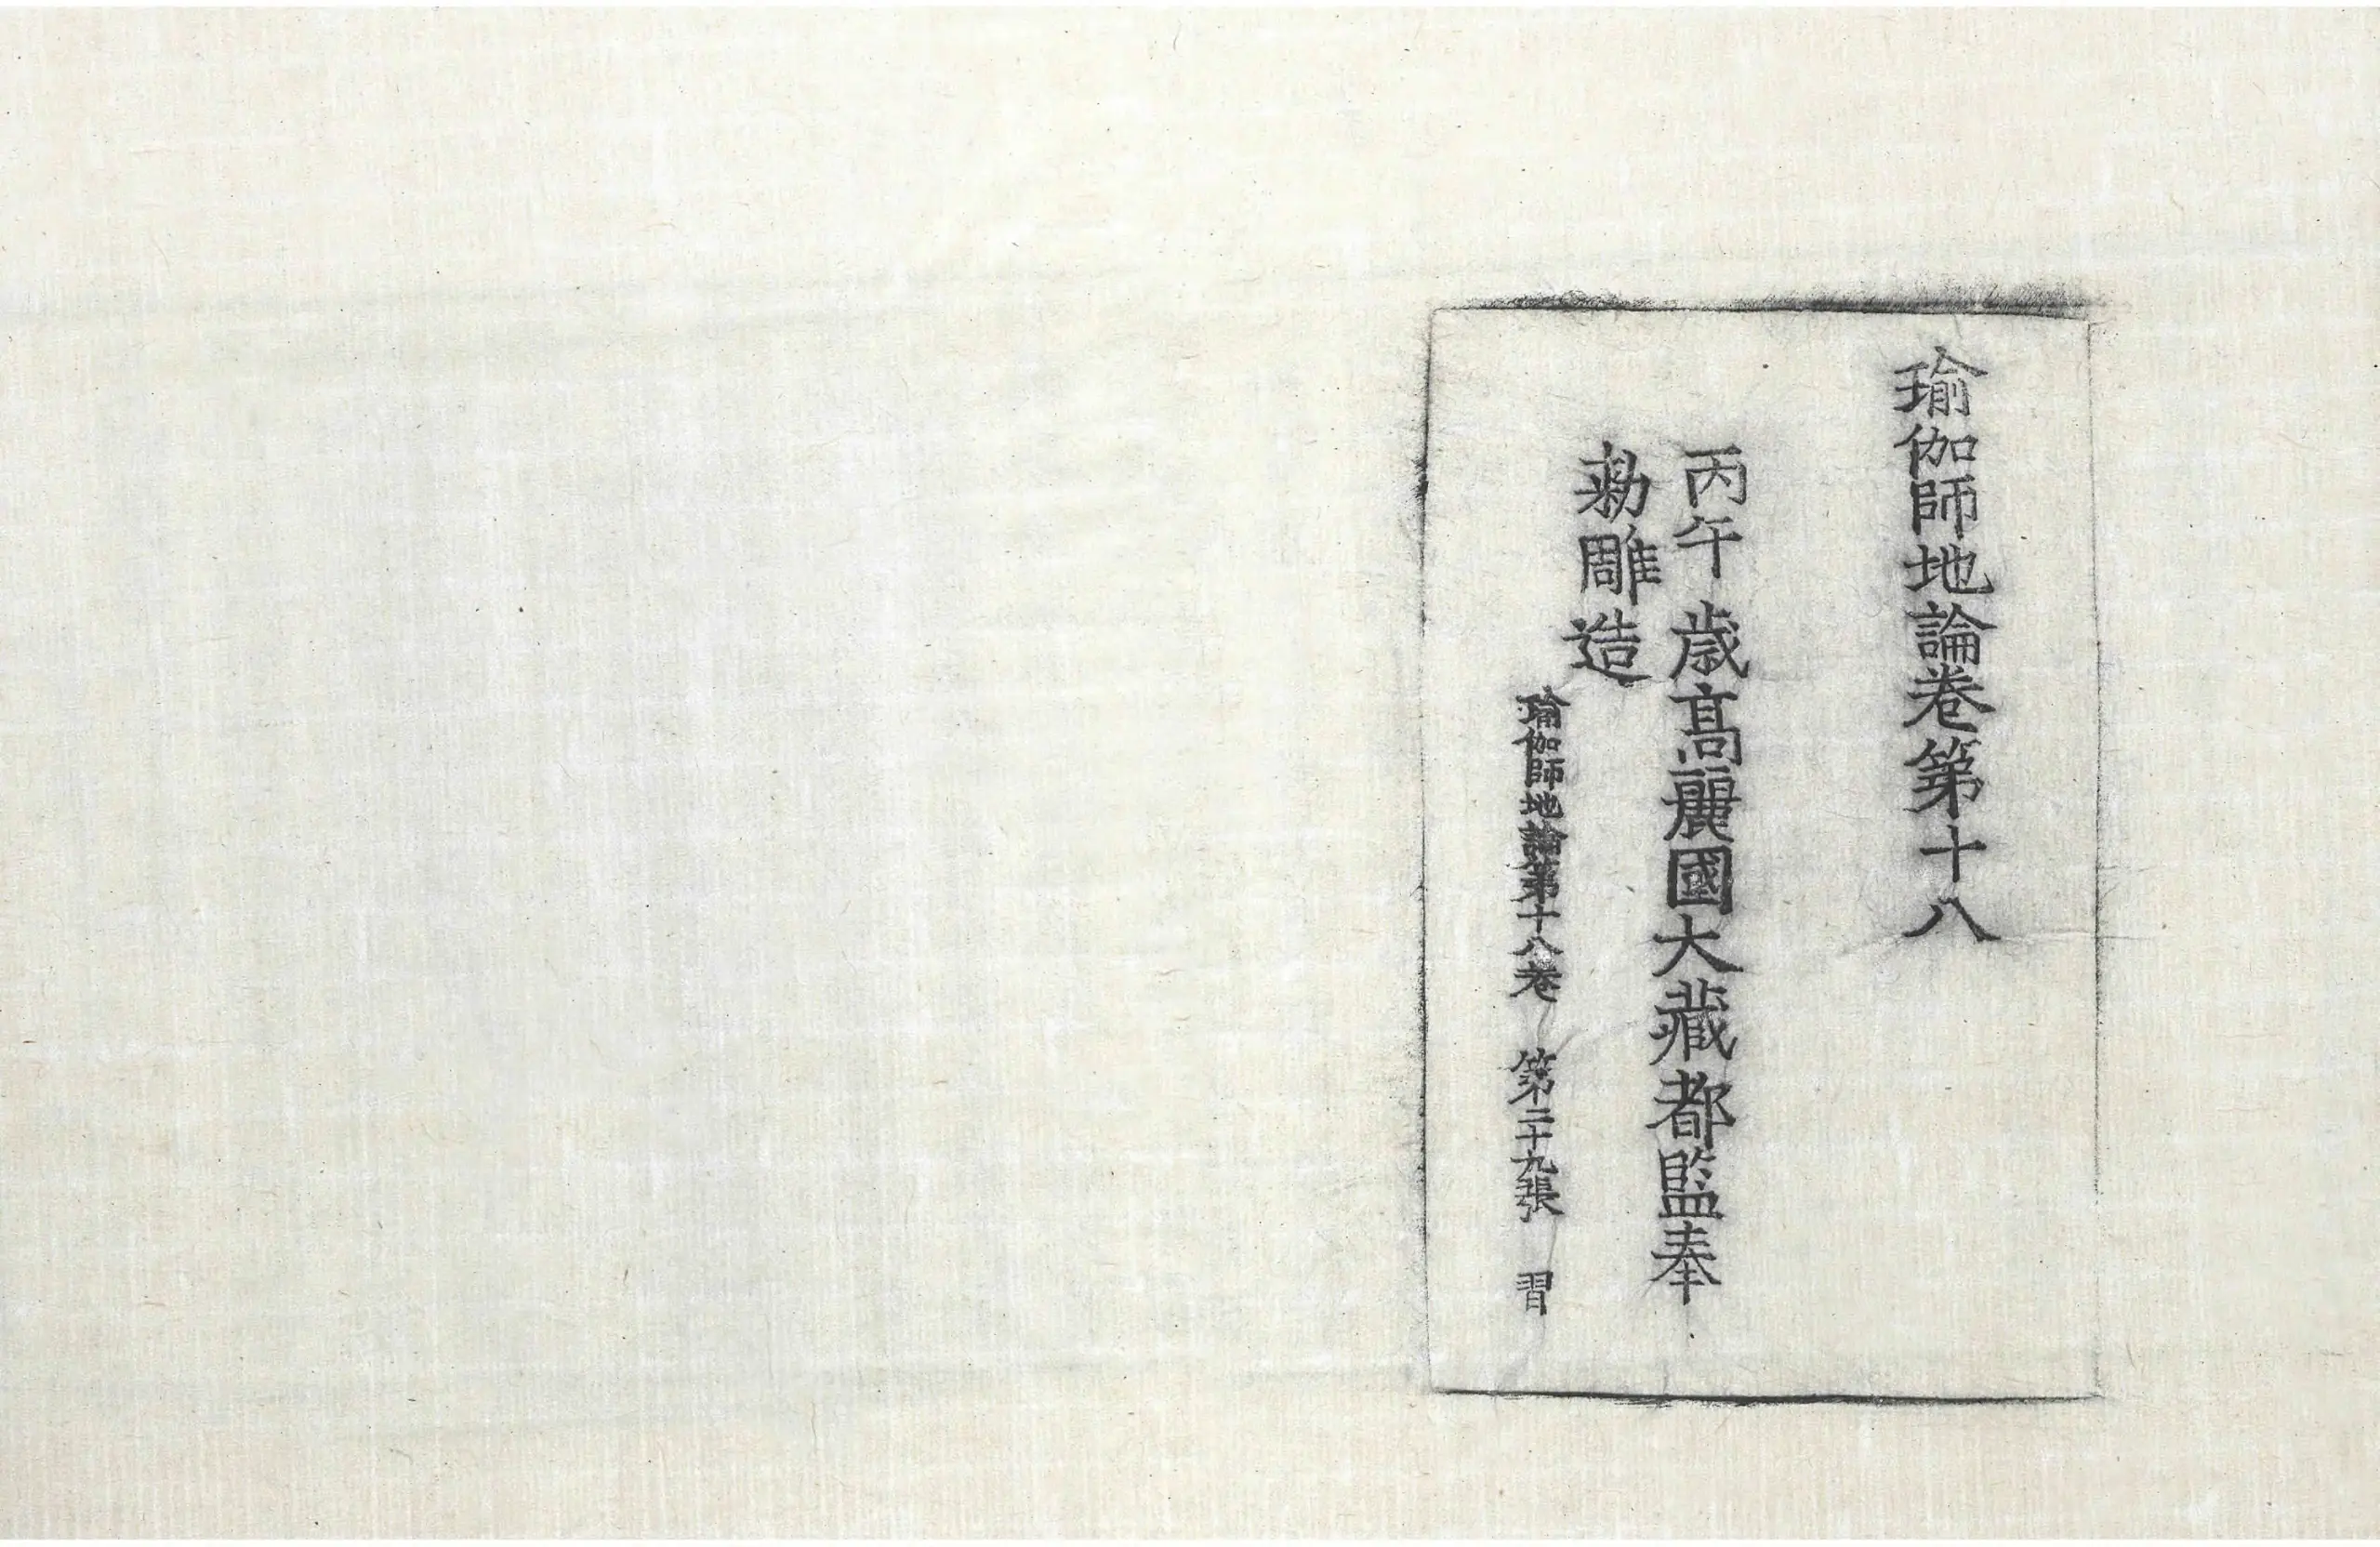 瑜伽師地論卷第十八
丙午歲高麗國大藏都監奉
勑雕造
瑜伽師地論第十八卷 第二十九張 習